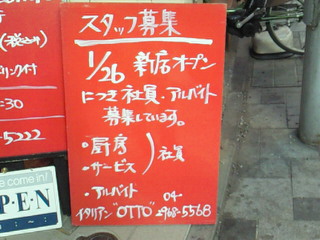 スタッフ募集
1/26 新店オープン
につき社員・アルバイト
募集しています。
・厨房
・サービス
社員
・アルバイト
04-
イタリアン"OTTO" 2968-5568
:30
-5222
come in!
PEN